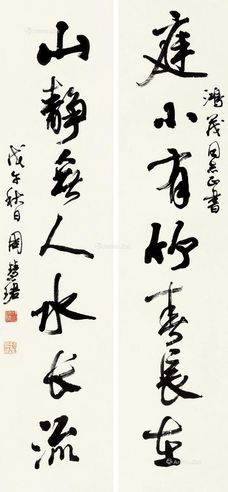 庭小有竹春长在
鸿茂同志正书
山静无人水长流
戊午秋日周慧珺